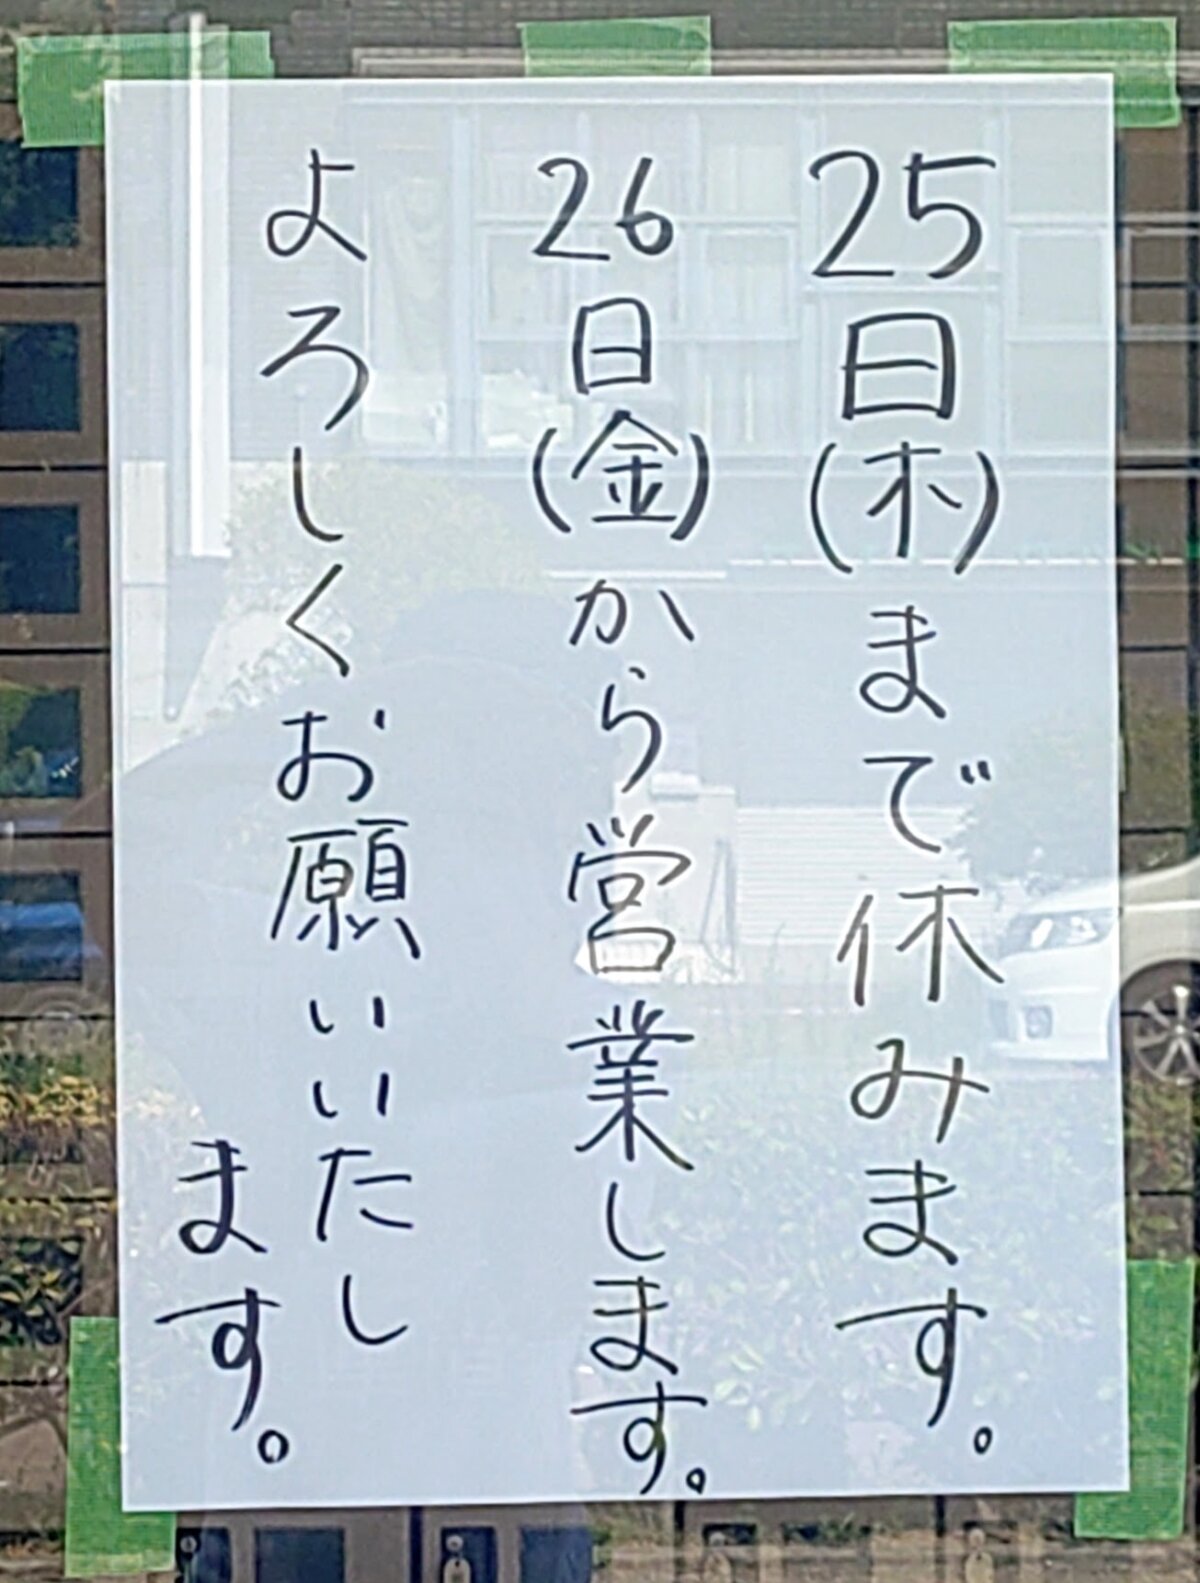 25日(木)まで休みます。
26日(金)から営業します。
よろしくお願いいたし
ます。